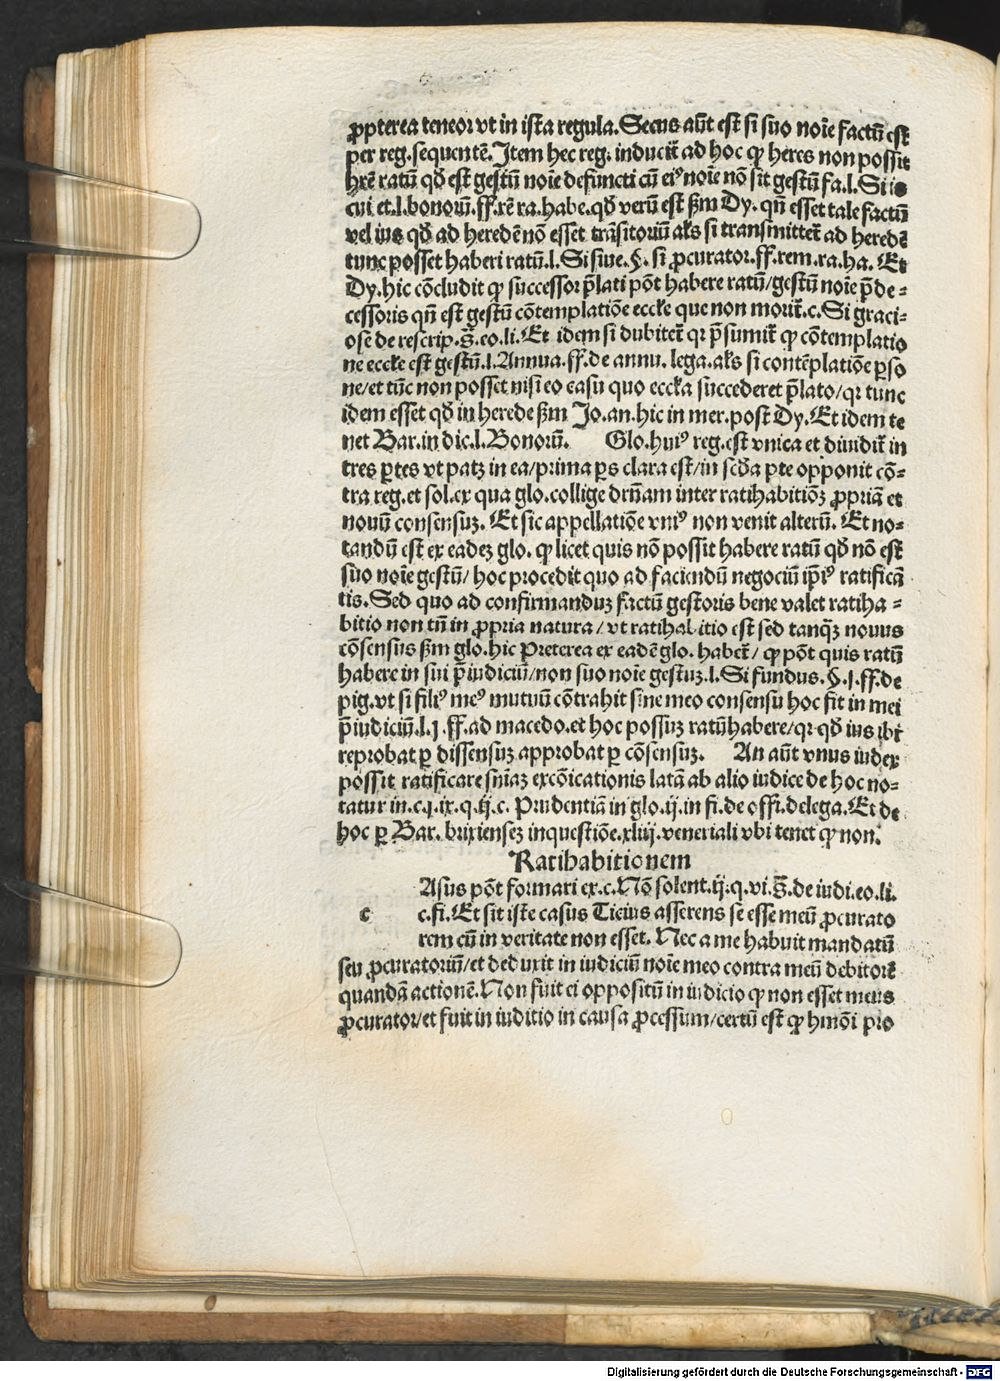 ꝓpterea teneor vt in ista regula. Secus aūt est si suo noīe factū est
per reg. sequentē. Item hec reg. inducit̄ ad hoc ꝙ heres non possit
hr̄e ratū qd̄ est gestū noīe defuncti cū eiꝰ noīe nō sit gestū fa. l. Si is
cui et. l. bonorū. ff. rē ra. habe. qd̄ verū est ẜm Dy. qn̄ esset tale factū
vel ius qd̄ ad heredē nō esset trāsitoriū al's si transmittet̄ ad heredē
tunc posset haberi ratū. l. Si siue. §. si ꝓcurator. ff. rem. ra. ha. Et
Dy. hic cōcludit ꝙ successor p̄lati pōt habere ratū/gestū noīe p̄de-
cessoris qn̄ est gestū cōtemplatiōe eccl'e que non morit̄. c. Si graci-
ose de rescrip. s̄. eo. li. Et idem si dubitet̄ qr p̄sumit̄ ꝙ cōtemplatio
ne eccl'e est gestū. l. Annua. ff. de annu. lega. al's si contēplatiōe ꝑso
ne/et tūc non posset nisi eo casu quo eccl'a succederet p̄lato/qr tunc
idem esset qd̄ in herede ẜm Jo. an. hic in mer. post Dy. Et idem te
net Bar. in dic. l. Bonorū. Glo. huiꝰ reg. est vnica et diuidit̄ in
tres ꝑtes vt patꝫ in ea/prima ꝑs clara est/in scd̄a pte opponit cō-
tra reg. et sol. ex qua glo. collige drn̄am inter ratihabitiōꝫ ꝓpriā et
nouū consensuꝫ. Et sic appellatiōe vniꝰ non venit alterū. Et no-
tandū est ex eadeꝫ glo. ꝙ licet quis nō possit habere ratū qd̄ nō est
suo noīe gestū/ hoc procedit quo ad faciendū negociū ip̄iꝰ ratificā
tis. Sed quo ad confirmanduꝫ factū gestoris bene valet ratiha-
bitio non tn̄ in ꝓpria natura/ vt ratihabitio est sed tanq̄ꝫ nouus
cōsensus ẜm glo. hic Preterea ex eadē glo. habet̄/ ꝙ pōt quis ratū
habere in sui p̄iudiciū/non suo noīe gestuꝫ. l. Si fundus. §. j. ff. de
pig. vt si filiꝰ meꝰ mutuū cōtrahit sine meo consensu hoc fit in mei
p̄iudiciū. l. j. ff. ad macedo. et hoc possuꝫ ratū habere/qr qd̄ ius ibi
reprobat ꝑ dissensuꝫ approbat ꝑ cōsensuꝫ. An aūt vnus iudex
possit ratificare sn̄iaꝫ excōicationis latā ab alio iudice de hoc no-
tatur in. c. j. ix. q. ij. c. Prudentiā in glo. ij. in fi. de offi. delega. Et de
hoc ꝑ Bar. brixienseꝫ in questiōe. xliij. veneriali vbi tenet ꝙ non.
Ratihabitionem
c Asus pōt formari ex. c. Nō solent. ij. q. vi. s̄. de iudi. eo. li.
c. fi. Et sit iste casus Ticius asserens se esse meū ꝓcurato
rem cū in veritate non esset. Nec a me habuit mandatū
seu ꝓcuratoriū/et deduxit in iudiciū noīe meo contra meū debitorē
quandā actionē. Non fuit ei oppositū in iudicio ꝙ non esset meus
ꝓcurator/et fuit in iuditio in causa ꝓcessum/certū est ꝙ hmōi pro
Digitalisierung gefördert durch die Deutsche Forschungsgemeinschaft - DFG